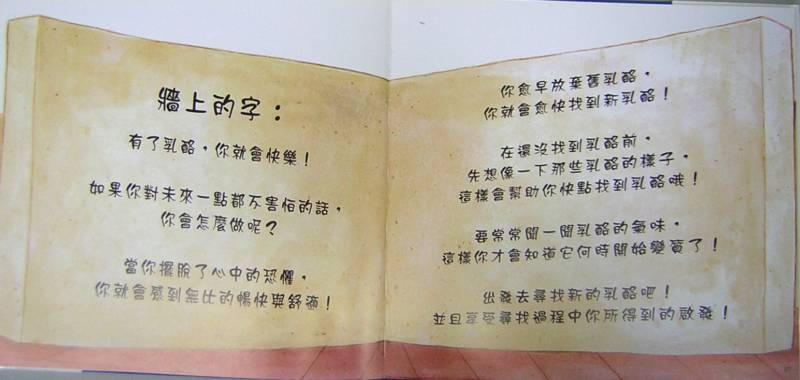 牆上的字：
有了乳酪，你就會快樂！
如果你對未來一點都不害怕的話，
你會怎麼做呢？
當你擺脫了心中的恐懼，
你就會感到無比的暢快與舒適！
你愈早放棄舊乳酪，
你就會愈快找到新乳酪！
在還沒找到乳酪前，
先想像一下那些乳酪的樣子，
這樣會幫助你快點找到乳酪哦！
要常常聞一聞乳酪的氣味，
這樣你才會知道它何時開始變質了！
出發去尋找新的乳酪吧！
並且享受尋找過程中你所得到的啟發！